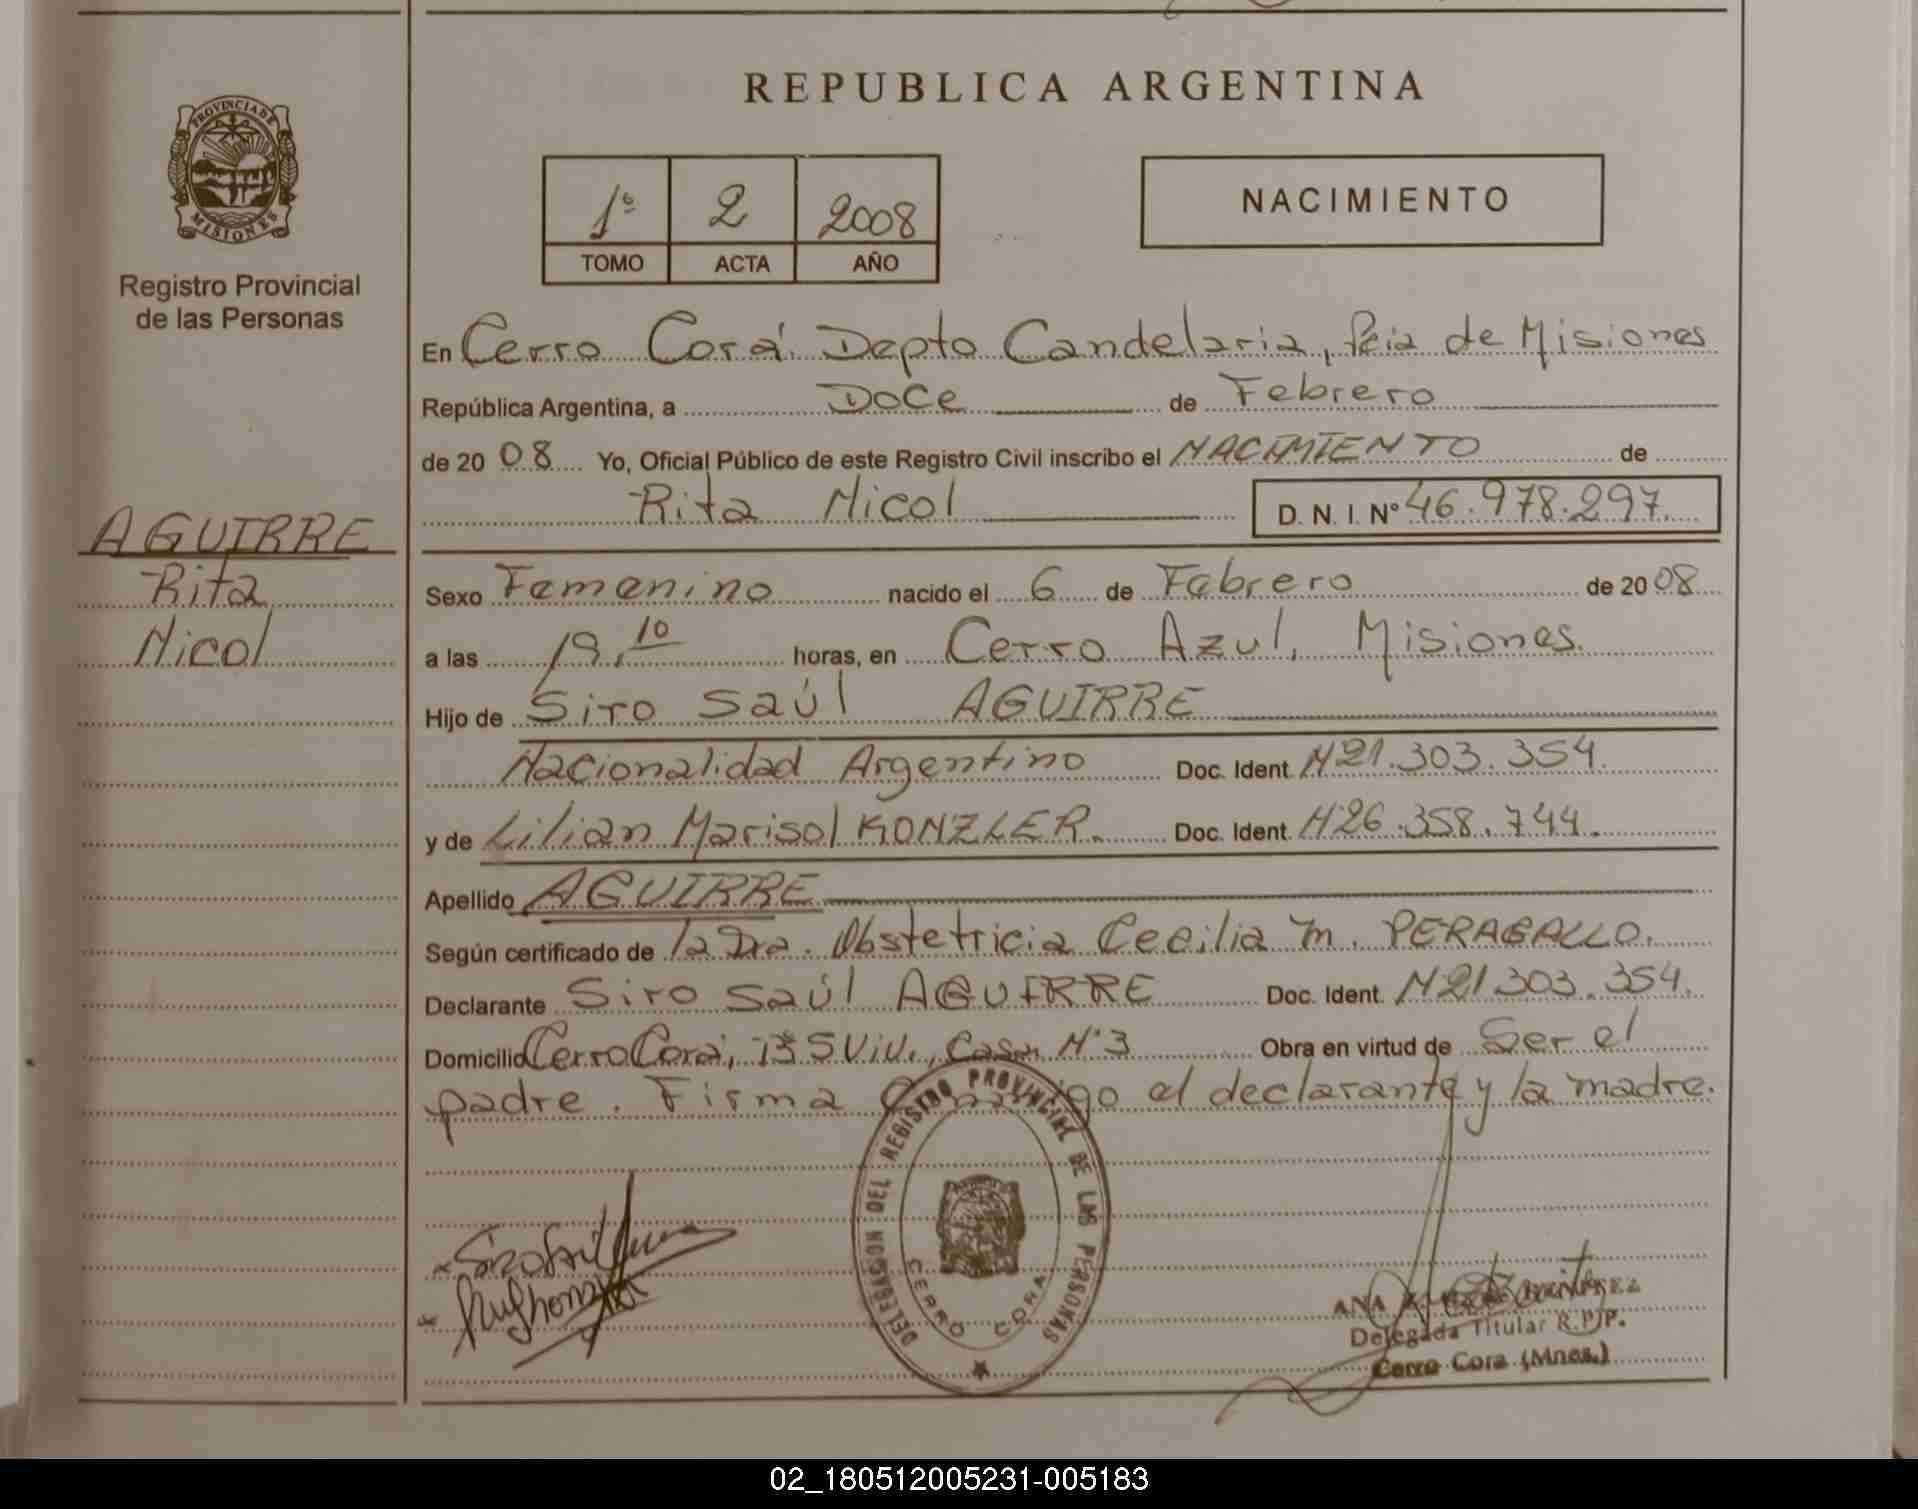 PROVINCIA DE
MISIONES
Registro Provincial
de las Personas
AGUIRRE
Rita
Nicol
REPUBLICA ARGENTINA
1º 2 2008
TOMO ACTA AÑO
NACIMIENTO
En Cerro Corá. Depto Candelaria, Pcia de Misiones
República Argentina, a Doce de Febrero
de 20 08 Yo, Oficial Público de este Registro Civil inscribo el NACIMIENTO de
Rita Nicol D. N. I. Nº 46.978.297.
Sexo Femenino nacido el 6 de Febrero de 20 08
a las 19,10 horas, en Cerro Azul, Misiones.
Hijo de Siro Saúl AGUIRRE
Nacionalidad Argentino Doc. Ident. Nº21.303.354.
y de Lilian Marisol KONZLER. Doc. Ident. Nº26.358.744.
Apellido AGUIRRE
Según certificado de la Dra. Obstetricia Cecilia M. PERAGALLO.
Declarante Siro Saúl AGUIRRE Doc. Ident. Nº21.303.354.
Domicilio Cerro Corá, Viv., Casa Nº3 Obra en virtud de Ser el
padre. Firma el declarante y la madre.
DELEGACION DEL REGISTRO PROVINCIAL DE LAS PERSONAS
CERRO CORA
ANA
Delegada Titular R.P.P.
Cerro Cora (Mnes.)
02_180512005231-005183